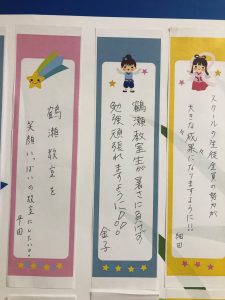 スクールの生徒全員の努力が
大きな成果になりますように!!
細田
鶴瀬教室生が暑さに負けず
勉強頑張れますように!!!
金子
鶴瀬教室を
笑顔いっぱいの教室にしたい!!
平田